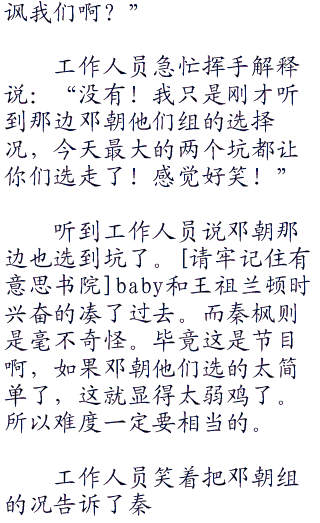 讽我们啊？”
工作人员急忙挥手解释
说：“没有！我只是刚才听
到那边邓朝他们组的选择
况，今天最大的两个坑都让
你们选走了！感觉好笑！”
听到工作人员说邓朝那
边也选到坑了。[请牢记住有
意思书院]baby和王祖兰顿时
兴奋的凑了过去。而秦枫则
是毫不奇怪。毕竟这是节目
啊，如果邓朝他们选的太简
单了，这就显得太弱鸡了。
所以难度一定要相当的。
工作人员笑着把邓朝组
的况告诉了秦